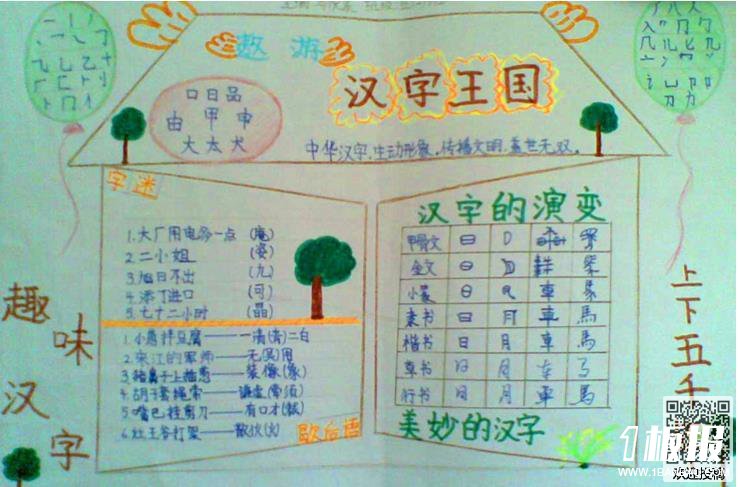 遨游
汉字王国
口日品
由甲申
大太犬
中华汉字,生动形象,传播文明,盖世无双。
字迷
1.大厂用电多一点 (庵)
2.二小姐 (姿)
3.旭日不出 (九)
4.添丁进口 (可)
5.七十二小时 (晶)
1.小葱拌豆腐——一清(青)二白
2.宋江的军师——无(吴)用
3.猪鼻子上插葱——装像(象)
4.胡子套绳带——谦虚(牵须)
5.嘴巴挂剪刀——有口才(裁)
6.灶王爷打架——散伙(火)
歇后语
汉字的演变
甲骨文
金文
小篆
隶书 日 月 車 馬
楷书 日 月 車 馬
草书
行书 日 月 車 馬
美妙的汉字
趣味汉字
上下五千
1板报
WWW.1BANBAO.COM
欢迎投稿